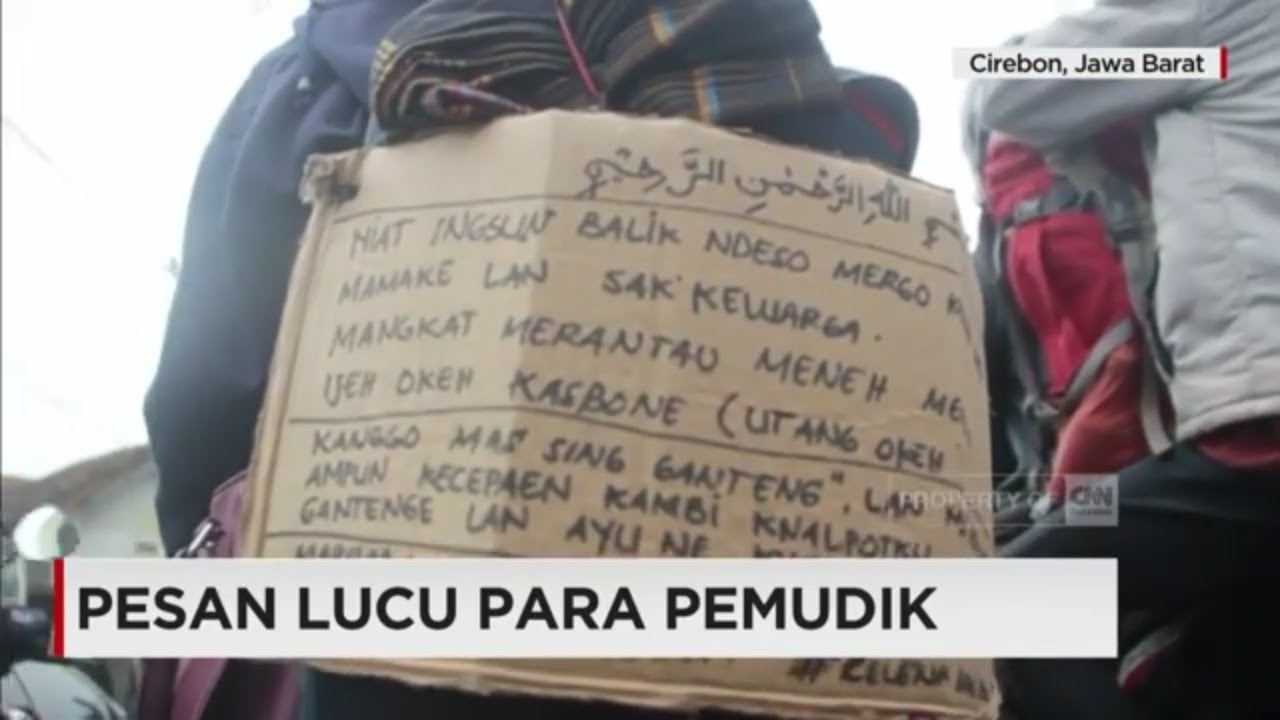 Cirebon, Jawa Barat
اللهِ الرَّحْمٰنِ الرَّحِيْمِ
NIAT INGSUN BALIK NDESO MERGO
MAMAKE LAN SAK KEWARGA.
MANGKAT MERANTAU MENEH
IJEH OKEH KASBONE (UTANG OKEH
KANGGO MAS" SING GANTENG". LAN
AMPUN KECEPAEN KAMBI KNALPOTKU
GANTENGE LAN AYU NE
PROPERTY OF CNN
PESAN LUCU PARA PEMUDIK